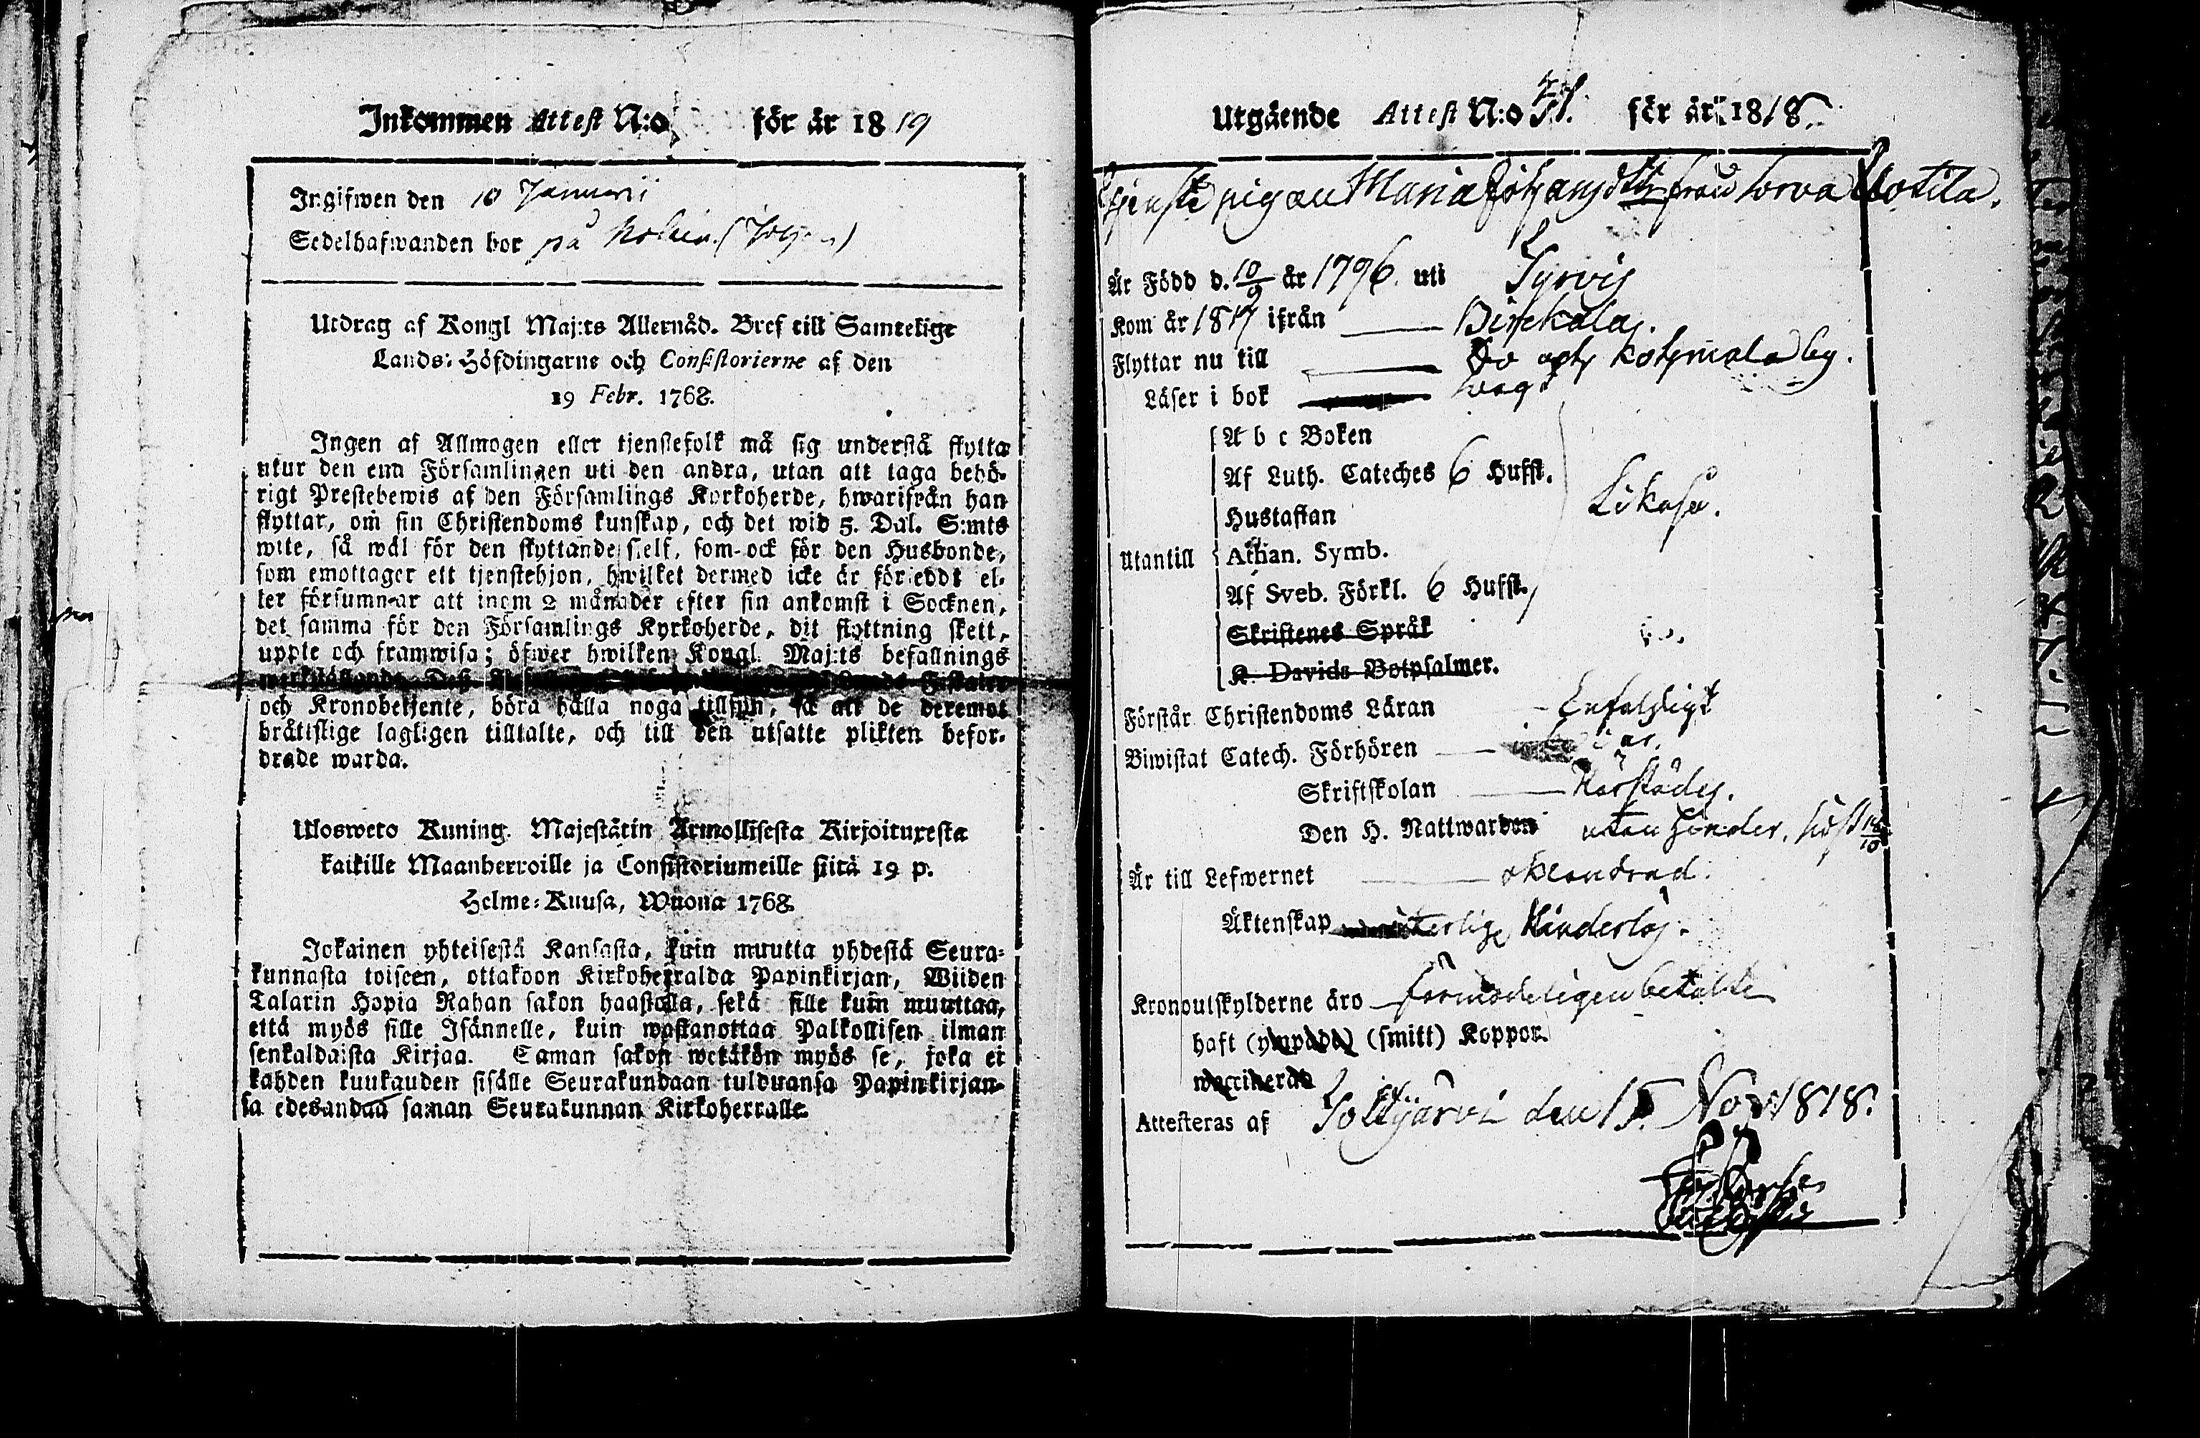 Inkommen Attest N:o för år 1819
Ingifwen den 10 Januarii
Sedelhafwanden bor på
Utdrag af Kongl Maj:ts Allernåd. Bref till Samtelige
Lands-Höfdingarne och Consistorierne af den
19 Febr. 1768.
Ingen af Allmogen eller tjenstefolk må sig understå flytta
utur den ena Församlingen uti den andra, utan att taga behö-
rigt Prestebewis af den Församlings Kyrkoherde, hwarifrån han
flyttar, om sin Christendoms kunskap, och det wid 5. Dal. S:mts
wite, så wäl för den flyttande sjelf, som ock för den Husbonde,
som emottager ett tjenstehjon, hwilket dermed icke är förseddt el-
ler försummar att inom 2 månader efter sin ankomst i Socknen,
det samma för den Församlings Kyrkoherde, dit flyttning skett,
uppte och framwisa; öfwer hwilken Kongl. Maj:ts befallnings
och Kronobetjente, böra hålla noga tillsyn, så att de deremot
bråttslige lagligen tilltalte, och till den utsatte plikten befor-
drade warda.
Ulosweto Kuning. Majestätin Armollisesta Kirjoituxesta
kaikille Maanherroille ja Consistoriumeille siitä 19 p.
Helme-Kuusa, Wuona 1768.
Jokainen yhteisestä Kansasta, kuin muutta yhdestä Seura-
kunnasta toiseen, ottakoon Kirkoherralda Papinkirjan, Wiiden
Talarin Hopia Rahan sakon haastolla, sekä sille kuin muuttaa,
että myös sille Isännelle, kuin wastanottaa Palkollisen ilman
senkaldaista Kirjaa. Saman sakon wetäkön myös se, joka ei
kahden kuukauden sisälle Seurakundaan tulduansa Papinkirjan-
sa edesandaa saman Seurakunnan Kirkoherralle.
Utgående Attest N:o 51. för år 1818.
Tjenste pigan Maria Johansdtr från Sorva Uotila.
Är Född d. 10/9 år 1796 uti Tyrvis
Kom år 1817 ifrån Birckala.
Flyttar nu till Do och Kohmala by.
Läser i bok svagt
A b c Boken
Af Luth. Cateches 6 Hufst.
Hustaflan Likaså.
Utantill Athan. Symb.
Af Sveb. Förkl. 6 Hufst.
Skriftenes Språk
K. Davids Botpsalmer.
Förstår Christendoms Läran Enfaldigt
Biwistat Catech. Förhören
Skriftskolan Härstädes.
Den H. Nattwarden utan hinder, sist
Är till Lefwernet oklandrad.
Äktenskap hinderlös.
Kronoutskylderne äro förmodeligen betalte
haft (ympada) (smitt) Koppor.
waccinerad
Attesteras af Tottijärvi den 15 Nov 1818.